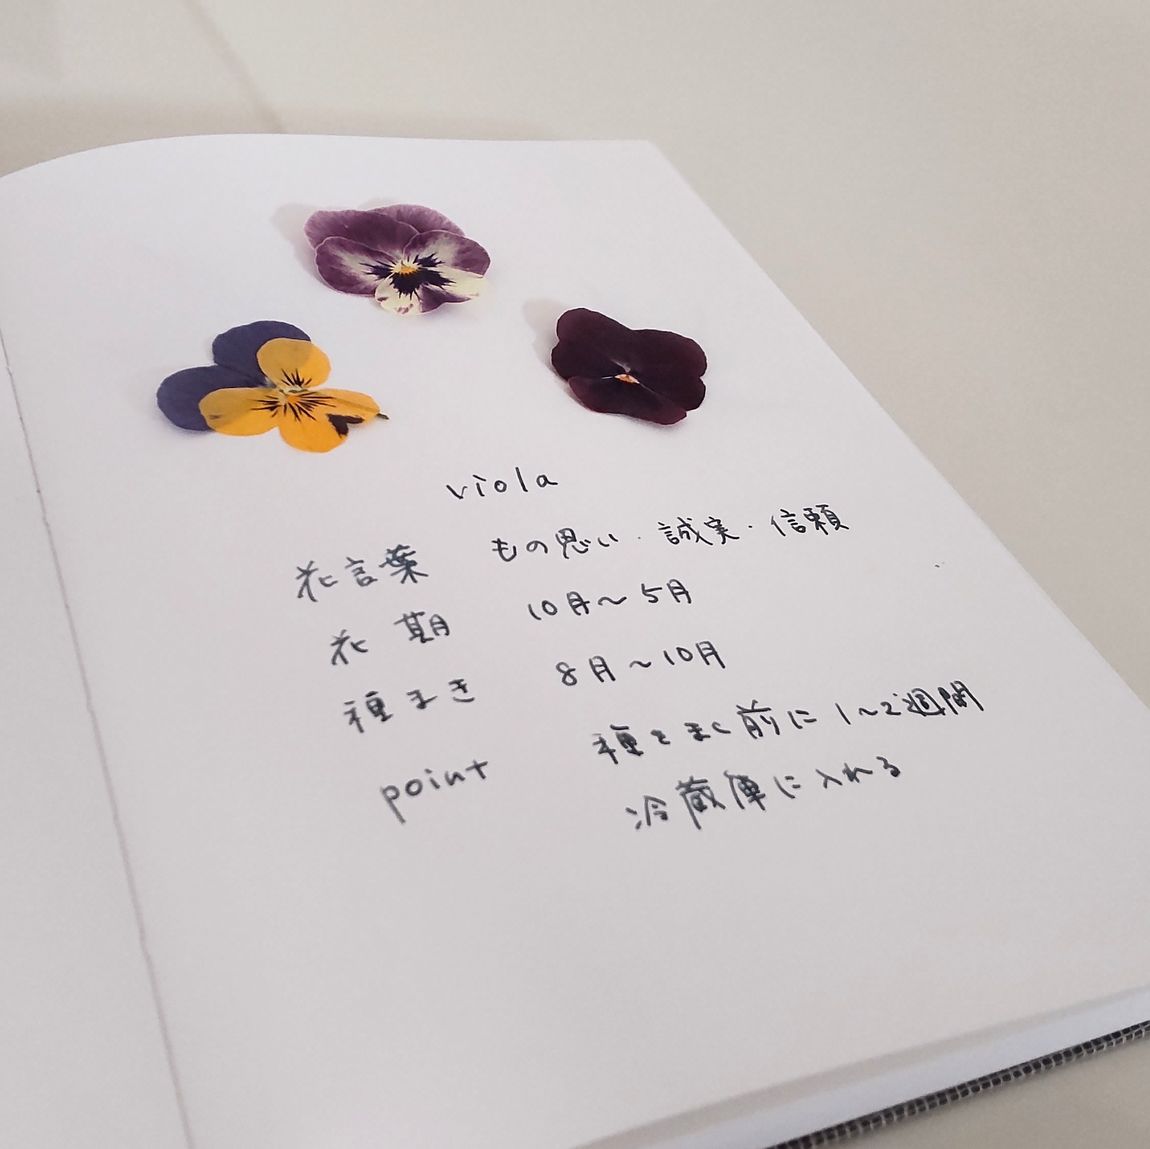 viola
花言葉 もの思い・誠実・信頼
花期 10月〜5月
種まき 8月〜10月
point 種をまく前に1〜2週間
冷蔵庫に入れる